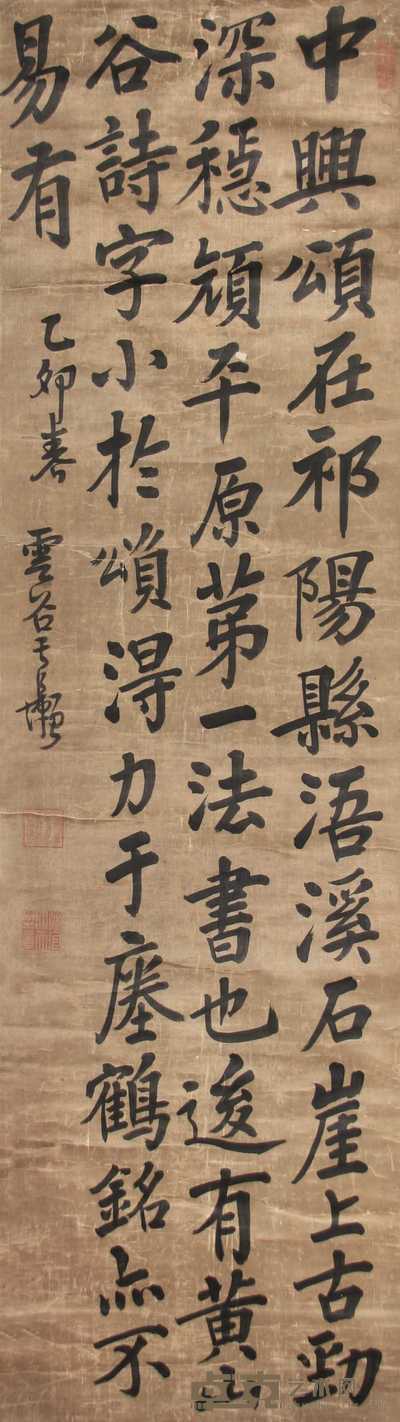 中興頌在祁陽縣浯溪石崖上古勁
深穩顏平原苐一法書也後有黃山
谷詩字小於頌得力于瘞鶴銘亦不
易有
乙卯春 雲谷